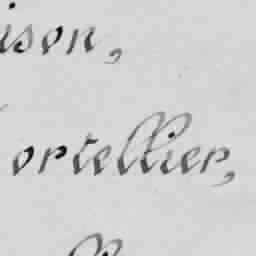 ison,
ortellier,